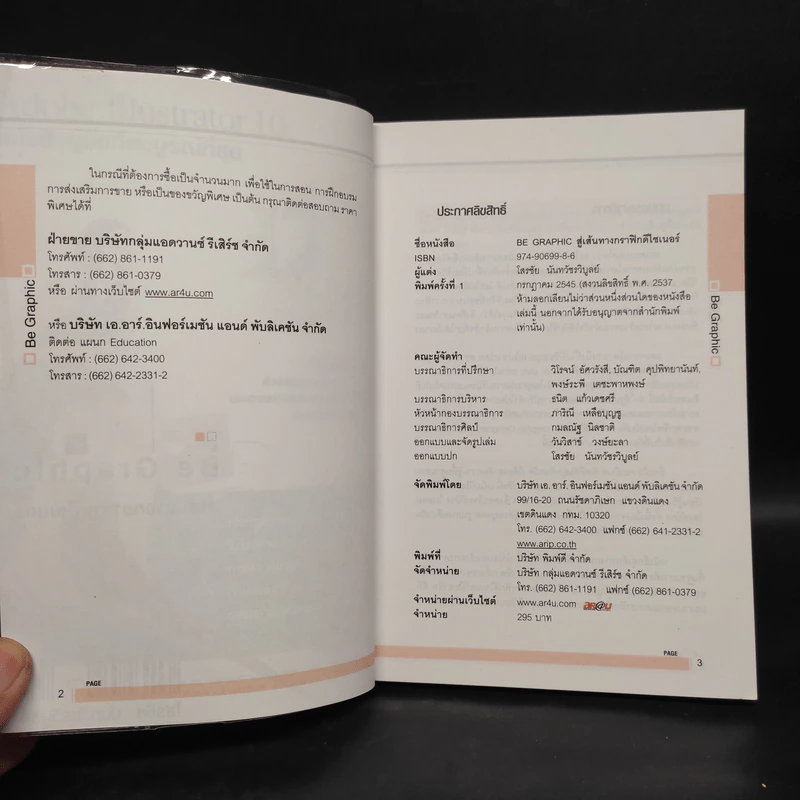 ในกรณีที่ต้องการซื้อเป็นจำนวนมาก เพื่อใช้ในการสอน การฝึกอบรม
การส่งเสริมการขาย หรือเป็นของขวัญพิเศษ เป็นต้น กรุณาติดต่อสอบถาม ราคา
พิเศษได้ที่
ฝ่ายขาย บริษัทกลุ่มแอดวานซ์ รีเสิร์ช จำกัด
โทรศัพท์ : (662) 861-1191
โทรสาร : (662) 861-0379
หรือ ผ่านทางเว็บไซต์ www.ar4u.com
หรือ บริษัท เอ.อาร์.อินฟอร์เมชัน แอนด์ พับลิเคชัน จำกัด
ติดต่อ แผนก Education
โทรศัพท์ : (662) 642-3400
โทรสาร : (662) 642-2331-2
Be Graphic
PAGE
2
ประกาศลิขสิทธิ์
ชื่อหนังสือ BE GRAPHIC สู่เส้นทางกราฟิกดีไซเนอร์
ISBN 974-90699-8-6
ผู้แต่ง โสรชัย นันทวัชรวิบูลย์
พิมพ์ครั้งที่ 1 กรกฎาคม 2545 (สงวนลิขสิทธิ์ พ.ศ. 2537
ห้ามลอกเลียนไม่ว่าส่วนหนึ่งส่วนใดของหนังสือ
เล่มนี้ นอกจากได้รับอนุญาตจากสำนักพิมพ์
เท่านั้น)
คณะผู้จัดทำ
บรรณาธิการที่ปรึกษา วิโรจน์ อัศวรังสี, บัณฑิต คุปพิทยานันท์,
พงษ์ระพี เตชะพาหพงษ์
บรรณาธิการบริหาร ธนิต แก้วเดชศรี
หัวหน้ากองบรรณาธิการ ภาริณี เหลือบุญชู
บรรณาธิการศิลป์ กมลณัฐ นิลชาติ
ออกแบบและจัดรูปเล่ม วันวิสาข์ วงษ์ยะลา
ออกแบบปก โสรชัย นันทวัชรวิบูลย์
จัดพิมพ์โดย บริษัท เอ. อาร์. อินฟอร์เมชัน แอนด์ พับลิเคชัน จำกัด
99/16-20 ถนนรัชดาภิเษก แขวงดินแดง
เขตดินแดง กทม. 10320
โทร. (662) 642-3400 แฟกซ์ (662) 641-2331-2
www.arip.co.th
พิมพ์ที่ บริษัท พิมพ์ดี จำกัด
จัดจำหน่าย บริษัท กลุ่มแอดวานซ์ รีเสิร์ช จำกัด
โทร. (662) 861-1191 แฟกซ์ (662) 861-0379
จำหน่ายผ่านเว็บไซต์ www.ar4u.com ar@u
จำหน่าย 295 บาท
Be Graphic
PAGE
3